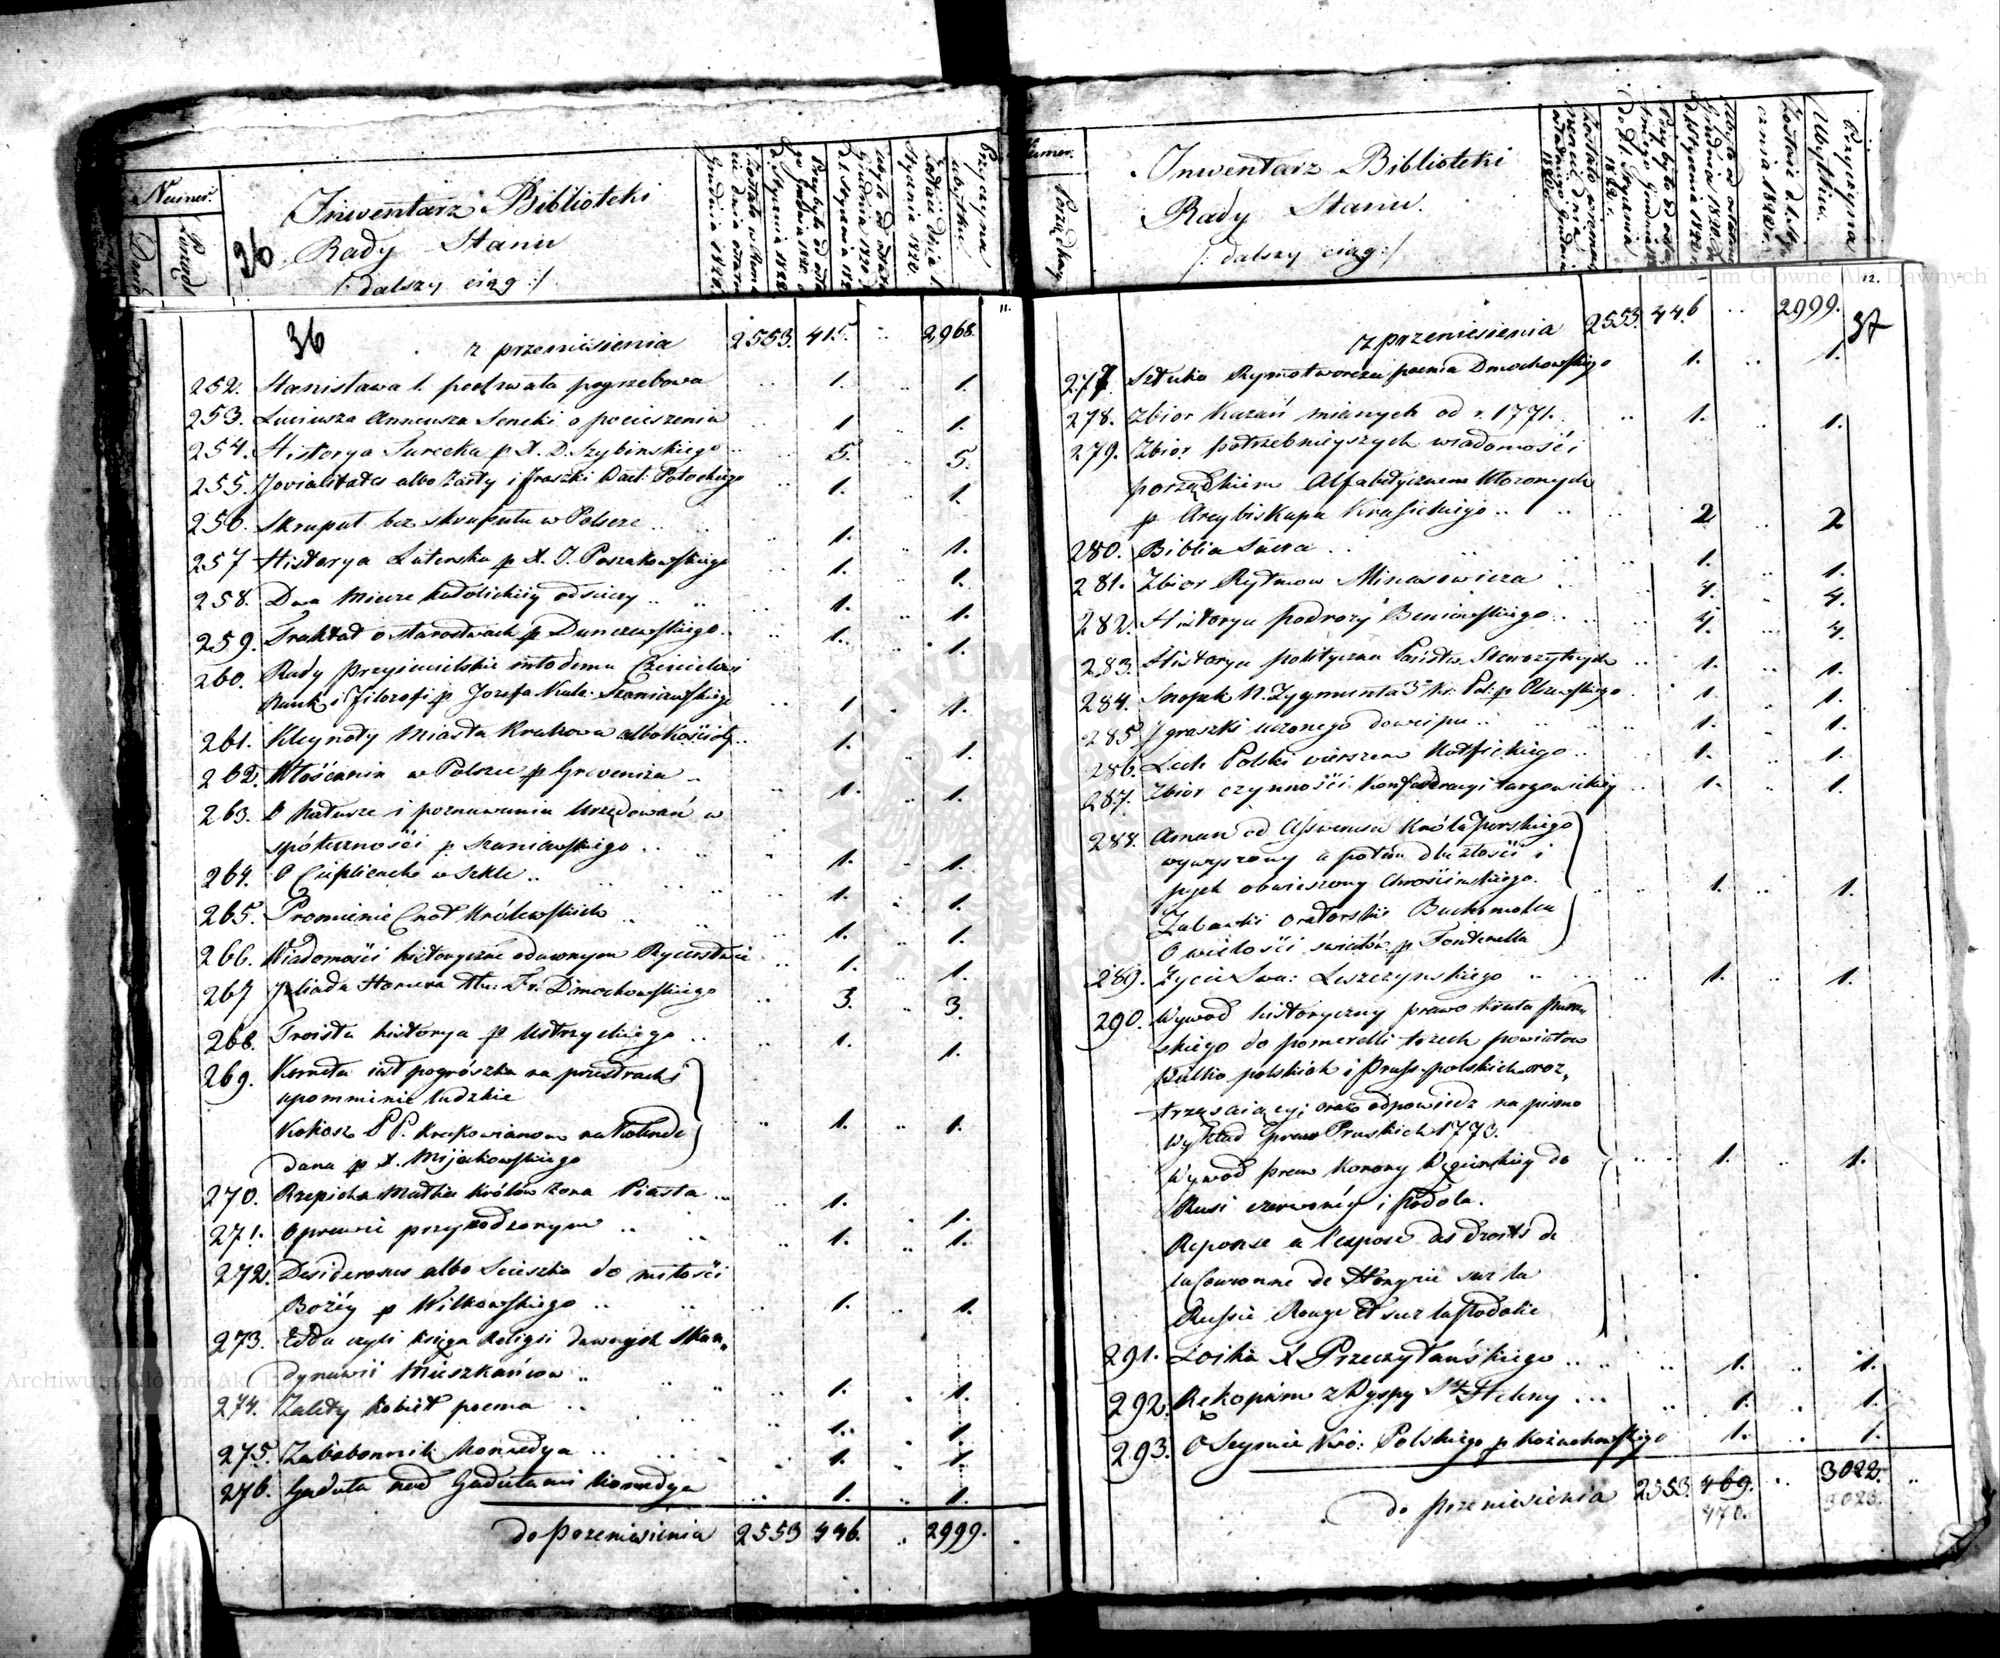 Numer.
Dział
Porząd
36
Inwentarz Biblioteki
Rady Stanu
/: dalszy ciąg :/
Przyczyna ubytku
11.
36
z przeniesienia 2553. 415. .. 2968.
252. Stanisława 1. pochwała pogrzebowa .. 1. 1.
253. Luciusza Anneusza Seneki o pocieszeniu .. 1. .. 1.
254. Historya Turecka p X. D. Szybinskiego .. 5. .. 5.
255. Jovialitates albo Żarty i fraszki Wacł: Potockiego 1. .. 1.
256. Skrupuł bez skrupułu w Polszcze .. 1. .. 1.
257 Historya Luterska p X. J. Poszakowskiego 1. .. 1.
258. Dwa Miecze katolickiey odsieczy .. .. 1. 1.
259. Traktat o starostwach p Dunczewskiego .. 1. .. 1.
260. Rady Przyiacielskie młodemu Czcicielowi
Nauk i Filozofi p Jozefa Kala: Szaniawskiego .. 1 . 1.
261. Kleynoty Miasta Krakowa albo kościoły .. 1. 1.
262. Włościanin w Polszcze p Grevenitza .. 1. .. 1.
263. O Naturze i poznawaniu Urzędowań w
spółeczności p Szaniawskiego .. .. 1. .. 1.
264. O Cieplicach w Szkle .. .. 1. 1.
265. Promienie Cnot Królewskich .. .. 1. .. 1.
266. Wiadomości historyczne o dawnym Rycerstwie .. 1. 1.
267 Jliada Homera tłu: Fr: Dmochowskiego .. 3. .. 3.
268. Troista historya p Ustrzyckiego .. .. 1. 1.
269. Kometa iest pogróżka na postrach i
upomnienie ludzkie
Kokosz P P. Krakowianom na Kolende
dana p X. Mijakowskiego 1. .. 1.
270. Rzepicha Matka Królów żona Piasta .. 1. 1.
271. O prawie przyrodzonym .. .. 1. .. 1.
272. Desiderosus albo Scieszka do miłości
Bożéy p Wilkowskiego .. .. 1. .. 1.
273. Edda czyli księga Religii dawnych Skan„
dynawii Mieszkańców .. .. 1. .. 1.
274. Zalety kobiet poema .. .. 1. .. 1.
275. Zabobonnik Komedya .. 1. 1.
276. Gaduła nad Gadułami Komedya .. 1. .. 1.
do przeniesienia 2553 446. .. 2999.
Numer.
Porządkowy
Inwentarz Biblioteki
Rady Stanu.
/: dalszy ciąg :/
Przyczyna
Ubytku.
12.
z przeniesienia 2553. 446 .. 2999. 37
277 Sztuka Rymotworcza poema Dmochowskiego 1. .. 1.
278. Zbior Kazań mianych od r. 1771. .. 1. .. 1.
279. Zbior potrzebnieyszych wiadomości
porządkiem Alfabetycznem ułożonych
p Arcybiskupa Krasickiego .. .. 2 .. 2
280. Biblia Sacra .. .. 1. .. 1.
281. Zbior Rytmow Minasowicza .. 4. .. 4.
282. Historya podroży Beniowskiego .. .. 4. .. 4.
283. Historya polityczna Państw Starożytnych .. 1. .. 1.
284. Snopek N. Zygmunta 3º Kr: Pol: p Olszewskiego 1. .. 1.
285. Igraszki uczonego dowcipu .. .. 1. .. 1.
286. Lech Polski wierszem .. 1. .. 1.
287. Zbior czynności Konfederacyi targowickiey .. 1. .. 1.
288. Aman od Asswerusa Króla Perskiego
wywyższony a potém dla złości i
pych obwieszony Chrościnskiego.
Zabawki oratorskie
O wielości światów p Fontenella .. 1. .. 1.
289. Życie Sta: Leszczynskiego .. .. 1. .. 1.
290. Wywod historyczny prawo Króla Prus„
skiego do pomerelli trzech powiatow
Wielko polskich i Pruss polskich roz„
trząsaiący; oraz odpowiedz na pismo
Wykład praw Pruskich 1773.
Wywod praw Korony Węgierskiey do
Rusi czerwonéy i Podola.
Reponse a l'expose des droits de
la Couronne de Hongrie sur la
Russie Rouge et sur la Podolie .. 1. .. 1.
291. Loika X Przeczytańskiego .. .. 1. .. 1.
292. Rękopism z Wyspy Stéy Heleny ... .. 1. . 1.
293. O Seymie Kró: Polskiego p Kożuchowskiego 1. .. 1.
do przeniesienia 2553. 469. .. 3022. ..
470. 3023.
Archiwum Główne Akt Dawnych
Archiwum Główne Akt Dawnych